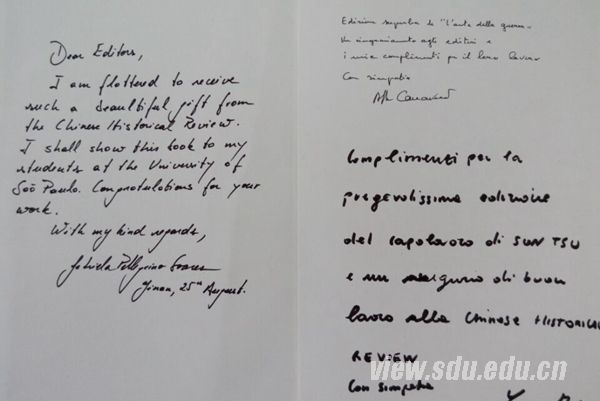 Dear Editors,
I am flattered to receive
such a beautiful gift from
the Chinese Historical Review.
I shall show this book to my
students at the University of
São Paulo. Congratulations for your
work.
With my kind regards,
Gabriela Pellegrino Soares
Jinan, 25th August.
Edizione superba de "L'arte della guerra".
Un ringraziamento agli editori e
i miei complimenti per il loro lavoro
Con simpatia
Complimenti per la
pregevolissima edizione
del capolavoro di SUN TSU
e un augurio di buon
lavoro alla CHINESE HISTORICAL
REVIEW
Con simpatia
view.sdu.edu.cn